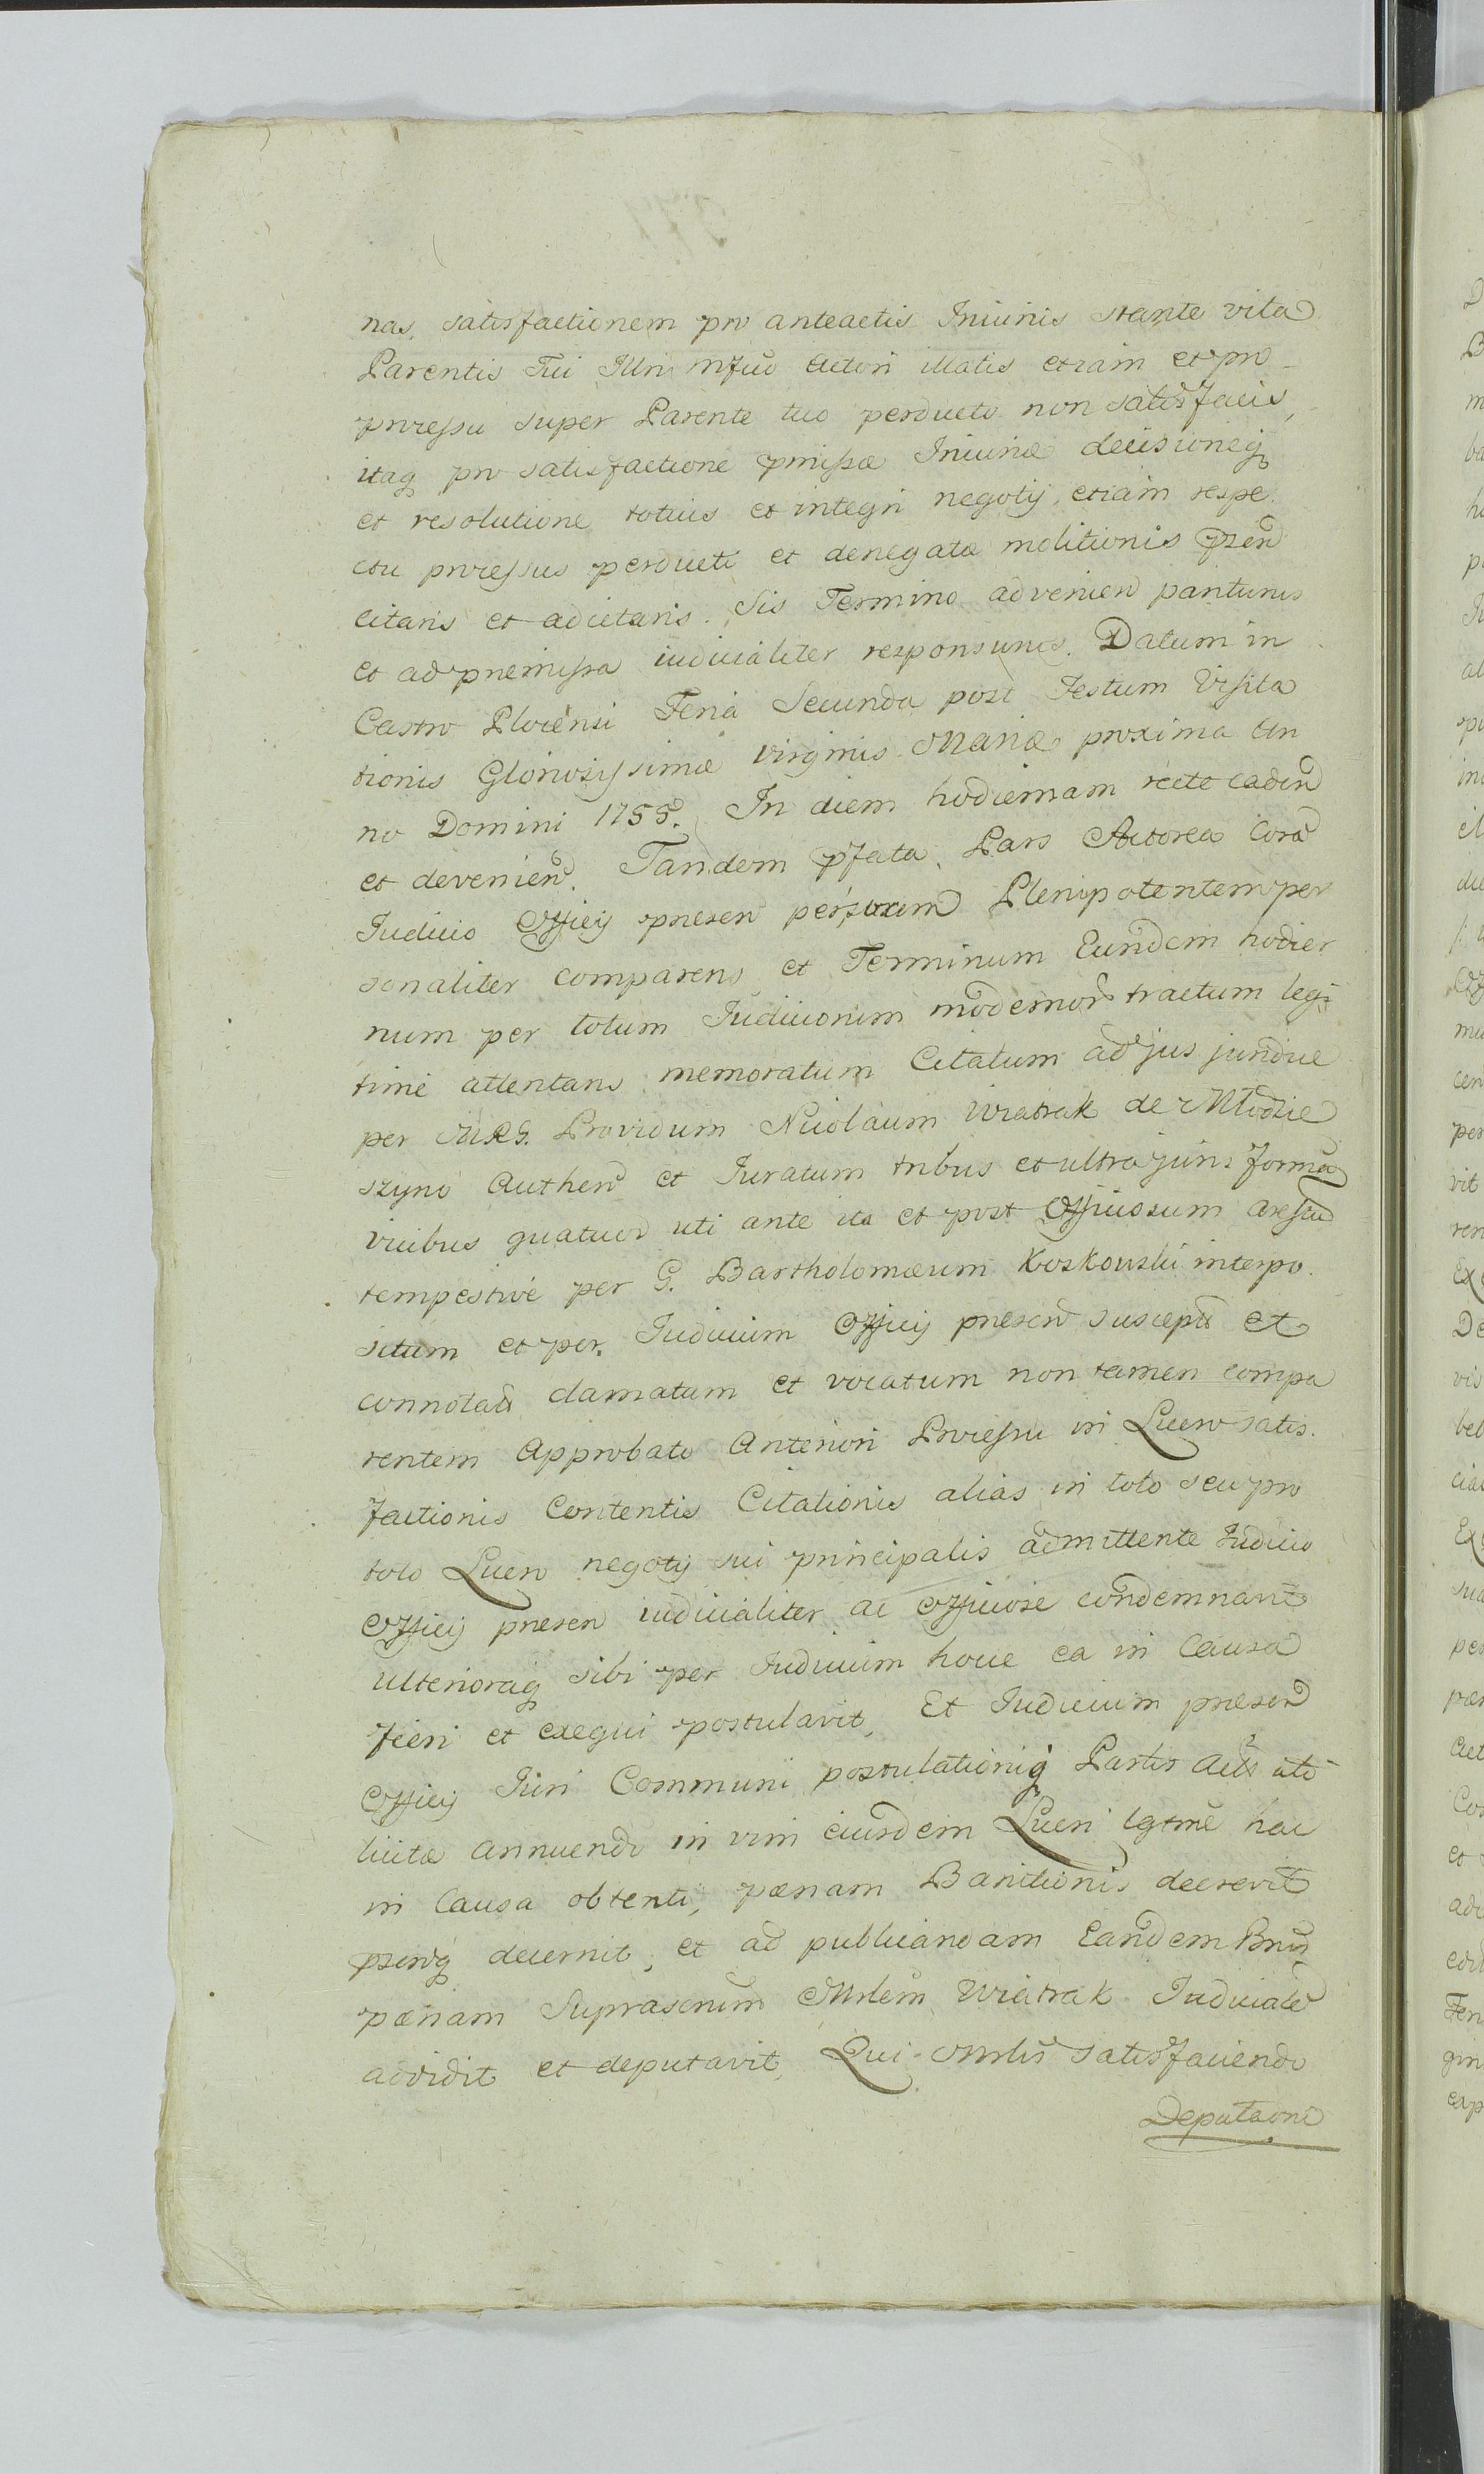 nas, satisfactionem pro anteactis Iniuriis stante vita
Parentis Tui Illri mfco Actori illatis etiam et pro
processu super Parente tuo perducto non satisfacis,
itaq pro satisfactione pmissæ Iniuriæ decisioneq
et resolutione totius et integri negotij, etiam respe
ctu processus perducti et denegatæ molitionis pzen
citaris et adcitaris. Sis Termino advenien pariturus
et ad præmissa iudicialiter responsurus. Datum in
Castro Plocensi Feria Secunda post Festum Visita
tionis Gloriosissimæ Virginis Mariæ proxima An
no Domini 1755. In diem hodiernam recte caden
et devenien. Tandem pfata Pars Actorea Cora
Iudicio Officij præsen per suum Plenipotentem per
sonaliter comparens et Terminum Eundem hodier
num per totum Iudiciorum modernor tractum legi
time attentans memoratum Citatum ad jus jundue
per MRG. Providum Nicolaum Wiatrak de Młodzie
szyno Authen et Iuratum tribus et ultra juris forma
vicibus quatuor uti ante ita et post Officiosum arestu
tempestivé per G. Bartholomæum Koskowski interpo
situm et per Iudicium Officij præsen suscept et
connotat clamatum et vocatum non tamen compa
rentem Approbato Anteriori Processu in Lucro satis
factionis Contentis Citationis alias in toto seu pro
toto Lucro negotij sui principalis admittente Iudicio
Officij præsen iudicialiter ac Officiose condemnavit
Ulterioraq sibi per Iudicium hocce ea in Causa
fieri et exequi postulavit, Et Iudicium præsen
Officij Iuri Communi postulationiq Partis Act uti
licitæ annuendo in vim eiusdem Lucri lgtme hac
in Causa obtenti, pænam Banitionis decrevit
pzenq decernit, et ad publicandam Eandem Bnis
pænam Suprascrium Mrlem Wiatrak Iudiciale
addidit et deputavit, Qui Mrlis satisfaciendo
Deputaoni